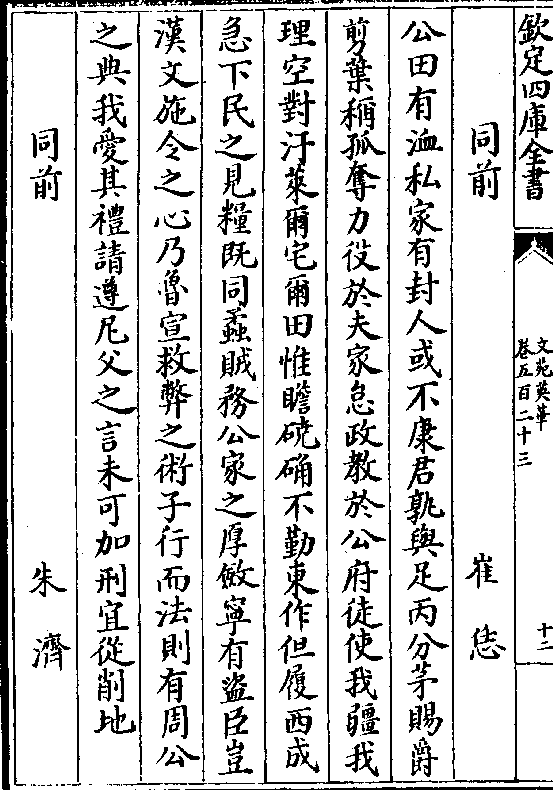 欽定四庫全書
文苑英華
卷五百二十三
十二
同前 崔恁
公田有洫私家有封人或不康君孰與足丙分茅賜爵
剪葉稱孤奪力役於夫家怠政教於公府徒使我疆我
理空對汙萊爾宅爾田惟瞻磽确不勤東作但履西成
急下民之見糧既同蟊賊務公家之厚斂寧有盜臣豈
漢文施令之心乃魯宣救弊之術子行而法則有周公
之典我愛其禮請遵尼父之言未可加刑宜從削地
同前 朱濟